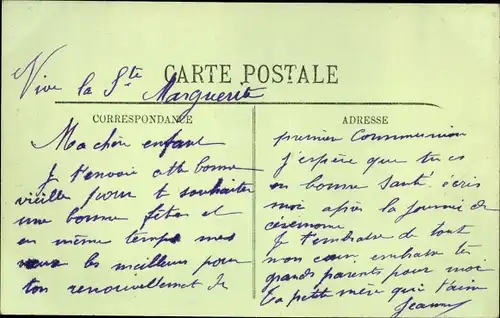 Vive la Ste
Marguerite
CARTE POSTALE
CORRESPONDANCE
Ma chère enfant
Je t'envoie cette bonne
vieille pour te souhaiter
une bonne fête et
en même temps mes
vœux les meilleurs pour
ton renouvellement de
ADRESSE
premier Communion
j'espère que tu es
en bonne santé écris
moi après la journée de
cérémonie
Je t'embrasse de tout
mon cœur. embrasse tes
grands parents pour moi
Ta petite mère qui t'aime
Jeanne